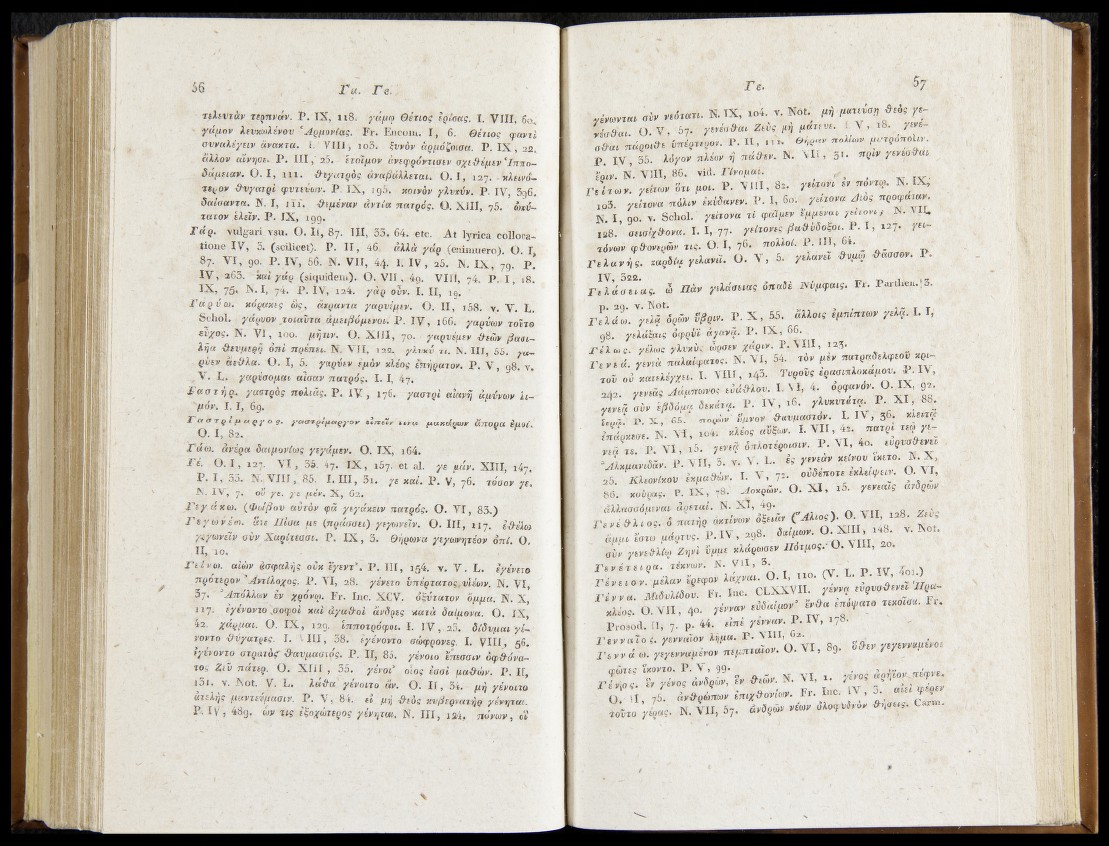 56 Γα. Γε.
τελευτὰν τερπνάν. P. IX, 118. γάμῳ Θέτιος ἐρίσας. I. VIII, 60.
γάμον λευκωλένου Ἁρμονίας. Fr. Encom. I, 6. Θέτιος φαντὶ
συναλέγειν ἄνακτα. I. VIII, 103. ξυνὸν ἁρμόζοισα. P. IX, 22.
ἄλλον αἴνησε. P. III, 25. ἑτοῖμον ἀνεφρόντισεν σχεθέμεν Ἱππο-
δάμειαν. O. I, 111. θυγατρὸς ἀναβάλλεται. O. I, 127. κλεινό-
τερον θυγατρὶ φυτεύων. P. IX, 195. κοινὸν γλυκύν. P. IV, 396.
δαίσαντα. N. I, 111. θιμέναν ἀντία πατρός. O. XIII, 75. ὠκύ-
τατον ἑλεῖν. P. IX, 199.
Γάρ. vulgari vsu. O. II, 87. III, 33. 64. etc. At lyrica colloca-
tione IV, 3. (scilicet). P. II, 46. ἀλλὰ γάρ (enimuero). O. I,
87. VI, 90. P. IV, 56. N. VII, 44. I. IV, 25. N. IX, 79. P.
IV, 263. καὶ γάρ (siquidem). O. VII, 49. VIII, 74. P. I, 18.
IX, 75. N. I, 74. P. IV, 124. γὰρ οὖν. I. II, 19.
Γαρύω. κόρακες ὥς, ἄκραντα γαρύεμεν. O. II, 158. v. V. L.
Schol. γάρυον τοιαῦτα ἀμειβόμενοι. P. IV, 166. γαρύων τοῦτο
εὖχος. N. VI, 100. μῆτιν. O. XIII, 70. γαρυέμεν θεῶν βασι-
λῆα θευμερῆ ὀπὶ πρέπει. N. VII, 122. γλυκύ τι. N. III, 55. γα-
ρύεν ἄεθλα. O. I, 5. γαρύεν ἐμὸν κλέος ἐπήρατον. P. V, 98. v.
V. L. γαρύσομαι αἶσαν πατρός. I. I, 47.
Γαστήρ. γαστρὸς πολιᾶς. P. IV, 176. γαστρὶ αἰανῆ ἀμύνων λι-
μόν. I. I, 69.
Γαστρίμαργος. γαστρίμαργον εἰπεῖν τινα μακάρων ἄπορα ἐμοί.
O. I, 82.
Γάω. ἀνέρα δαιμονίως γεγάμεν. O. IX, 164.
Γέ. O. I, 127. VI, 35. 47. IX, 157. et al. γε μάν. XIII, 147.
P. I, 33. N. VIII, 85. I. III, 31. γε καί. P. V, 76. τόσον γε.
N. IV, 7. οὔ γε. γε μέν. X, 62.
Γεγάκω. (Φοίβου αὐτὸν φᾶ γεγάκειν πατρός. O. VI, 83.)
Γεγωνέω. ἅτε Πίσα με (πράσσει) γεγωνεῖν. O. III, 117. ἐθέλω
γεγωνεῖν σὺν Χαρίτεσσι. P. IX, 3. Θήρωνα γεγωνητέον ὀπί. O.
II, 10.
Γείνω. αἰὼν ἀσφαλὴς οὐκ ἔγεντ'. P. III, 154. v. V. L. ἐγένετο
πρότερον Ἀντίλοχος. P. VI, 28. γένετο ὑπέρτατος υἱέων. N. VI,
37. Ἀπόλλων ἐν χρόνῳ. Fr. Inc. XCV. ὀξύτατον ὄμμα. N. X,
117. ἐγένοντο σοφοὶ καὶ ἀγαθοὶ ἄνδρες κατὰ δαίμονα. O. IX,
42. χάρμαι. O. IX, 129. ἱπποτρόφοι. I. IV, 23. δίδυμαι γέ-
νοντο θύγατρες. I. VIII, 38. ἐγένοντο σώφρονες. I. VIII, 56.
ἐγένοντο στρατὸς θαυμασιός. P. II, 85. γένοιο ἔπεσσιν ἀφθόνη-
τος Ζεῦ πάτερ. O. XIII, 35. γένοι' οἷος ἐσσὶ μαθών. P. II,
131. v. Not. V. L. λάθα γένοιτο ἄν. O. II, 34. μὴ γένοιτο
ἀτελὴς μαντεύμασιν. P. V, 84. εἰ μὴ θεὸς κυβερνατὴρ γένηται.
P. IV, 489. ὧν τις ἐξοχώτερος γένηται. N. III, 124. πόνων, οἳ
Γε. 57
γένωνται σὺν νεότατι. N. IX, 104. v. Not. μὴ ματεύσῃ θεὸς γε-
νέσθαι. O. V, 57. γενέσθαι Ζεὺς μὴ μάτευε. I. V, 18. γενέ-
σθαι πάροιθε ὑπέρτερον. P. II, 111. Θήραν πολίων ματρόπολιν.
P. IV, 35. λόγον πλέον ἢ πάθεν. N. VII, 31. πρὶν γενέσθαι
ἔριν. N. VIII, 86. vid. Γίνομαι.
Γείτων. γείτων ὅτι μοι. P. VIII, 82. γείτονι ἐν πόντῳ. N. IX,
103. γείτονα πόλιν ἐκύδανεν. P. I, 60. γείτονα Διὸς προφάταν.
N. I, 90. v. Schol. γείτονα τί φαῖμεν ἔμμεναι γείτονι; N. VII,
128. σεισίχθονα. I. I, 77. γείτονες βαθύδοξοι. P. I, 127. γει-
τόνων φθονερῶν τις. O. I, 76. πολλοί. P. III, 64.
Γελανής. καρδίᾳ γελανεῖ. O. V, 5. γελανεῖ θυμῷ θᾶσσον. P.
IV, 322.
Γελάσειας. ὦ Πὰν γελάσειας ὀπαδὲ Νύμφαις. Fr. Parthen. 3.
p. 29. v. Not.
Γελάω. γελᾷ ὁρῶν ὕβριν. P. X, 55. ἄλλοις ἐμπίπτων γελᾷ. I. I,
98. γελάξαις ὀφρύϊ ἀγανᾷ. P. IX, 66.
Γέλως. γέλως γλυκὺς ὦρσεν χάριν. P. VIII, 123.
Γενεά. γενεὰ παλαίφατος. N. VI, 54. τὸν μὲν πατραδελφεοῦ κρι-
τοῦ οὐ κατελέγχει. I. VIII, 143. Τυροῦς ἐρασιπλοκάμου. P. IV,
242. γενεᾶς Λάμπωνος εὐάθλου. I. VI, 4. ὀρφανόν. O. IX, 92.
γενεᾷ σὺν ἑβδόμᾳ δεκάτᾳ. P. IV, 16. γλυκυτάτᾳ. P. XI, 88.
ἱερᾷ. P. X, 65. πορὼν ὕμνον θαυμαστόν. I. IV, 36. κλειτᾷ
ἐπάρκεσε. N. VI, 104. κλέος αὔξων. I. VII, 42. πατρὶ τεῷ γε-
νεᾷ τε. P. VI, 15. γενεᾷ ὁπλοτέροισιν. P. VI, 40. εὐρυσθενεῖ
Ἀλκμανιδᾶν. P. VII, 3. v. V. L. ἐς γενεὰν κείνου ἵκετο. N. X,
25. Κλεονίκου ἐκμαθών. I. V, 72. οὐδέποτε ἐκλείψειν. O. VI,
86. κούρας. P. IX, 78. Λοκρῶν. O. XI, 15. γενεαῖς ἀνδρῶν
ἀλλασσόμεναι ἀρεταί. N. XI, 49.
Γενέθλιος. ὁ πατὴρ ἀκτίνων ὀξειᾶν (Ἅλιος). O. VII, 128. Ζεύς
ἄμμι ἔστω μάρτυς. P. IV, 298. δαίμων. O. XIII, 148. v. Not.
σὺν γενεθλίῳ Ζηνὶ ὔμμε κλάρωσεν Πότμος. O. VIII, 20.
Γενέτειρα. τέκνων. N. VII, 3.
Γένειον. μέλαν ἔρεφον λάχναι. O. I, 110. (V. L. P. IV, 401.)
Γέννα. Μιδυλίδου. Fr. Inc. CLXXVII. γέννᾳ εὐρυσθενεῖ Ἡρα-
κλέος. O. VII, 40. γένναν εὐδαίμον' ἔνθα ἐπόψατο τεκοῖσα. Fr.
Prosod. II, 7. p. 44. εἰπὲ γένναν. P. IV, 178.
Γενναῖος. γενναῖον λῆμα. P. VIII, 62.
Γεννάω. γεγενναμένον πεμπταῖον. O. VI, 89. ὅθεν γεγενναμένοι
φῶτες ἵκοντο. P. V, 99.
Γένος. ἓν γένος ἀνδρῶν, ἓν θεῶν. N. VI, 1. γένος ἀρήϊον πέφνε.
O. II, 75. ἀνθρώπων ἐπιχθονίων. Fr. Inc. IV, 3. αἰεὶ φέρεν
τοῦτο γέρας. N. VII, 57. ἀνδρῶν νέων ὀλοφυδνὸν θήσεις. Carm.